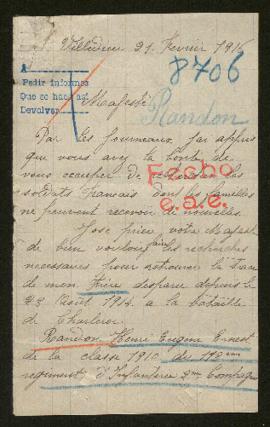 Villedieu 21 Fevrier 1916
8706
A
Pedir informes
Que se haga así
Devolver
Majesté
Randon
Par les journeaux, j'ai appris
que vous avez la bonté de
vous occuper de rechercher les
soldats français dont les familles
ne peuvent recevoir de nouvelles.
Fecho
e.a.e.
J'ose prier votre Majesté
de bien vouloir faire les recherches
necessaires pour retrouver la trace
de mon frère disparu depuis le
23 Août 1914 a la bataille
de Charleroi.
Randon Henri Eugène Ernest
de la classe 1910 du
regiment d'Infanterie Compagnie